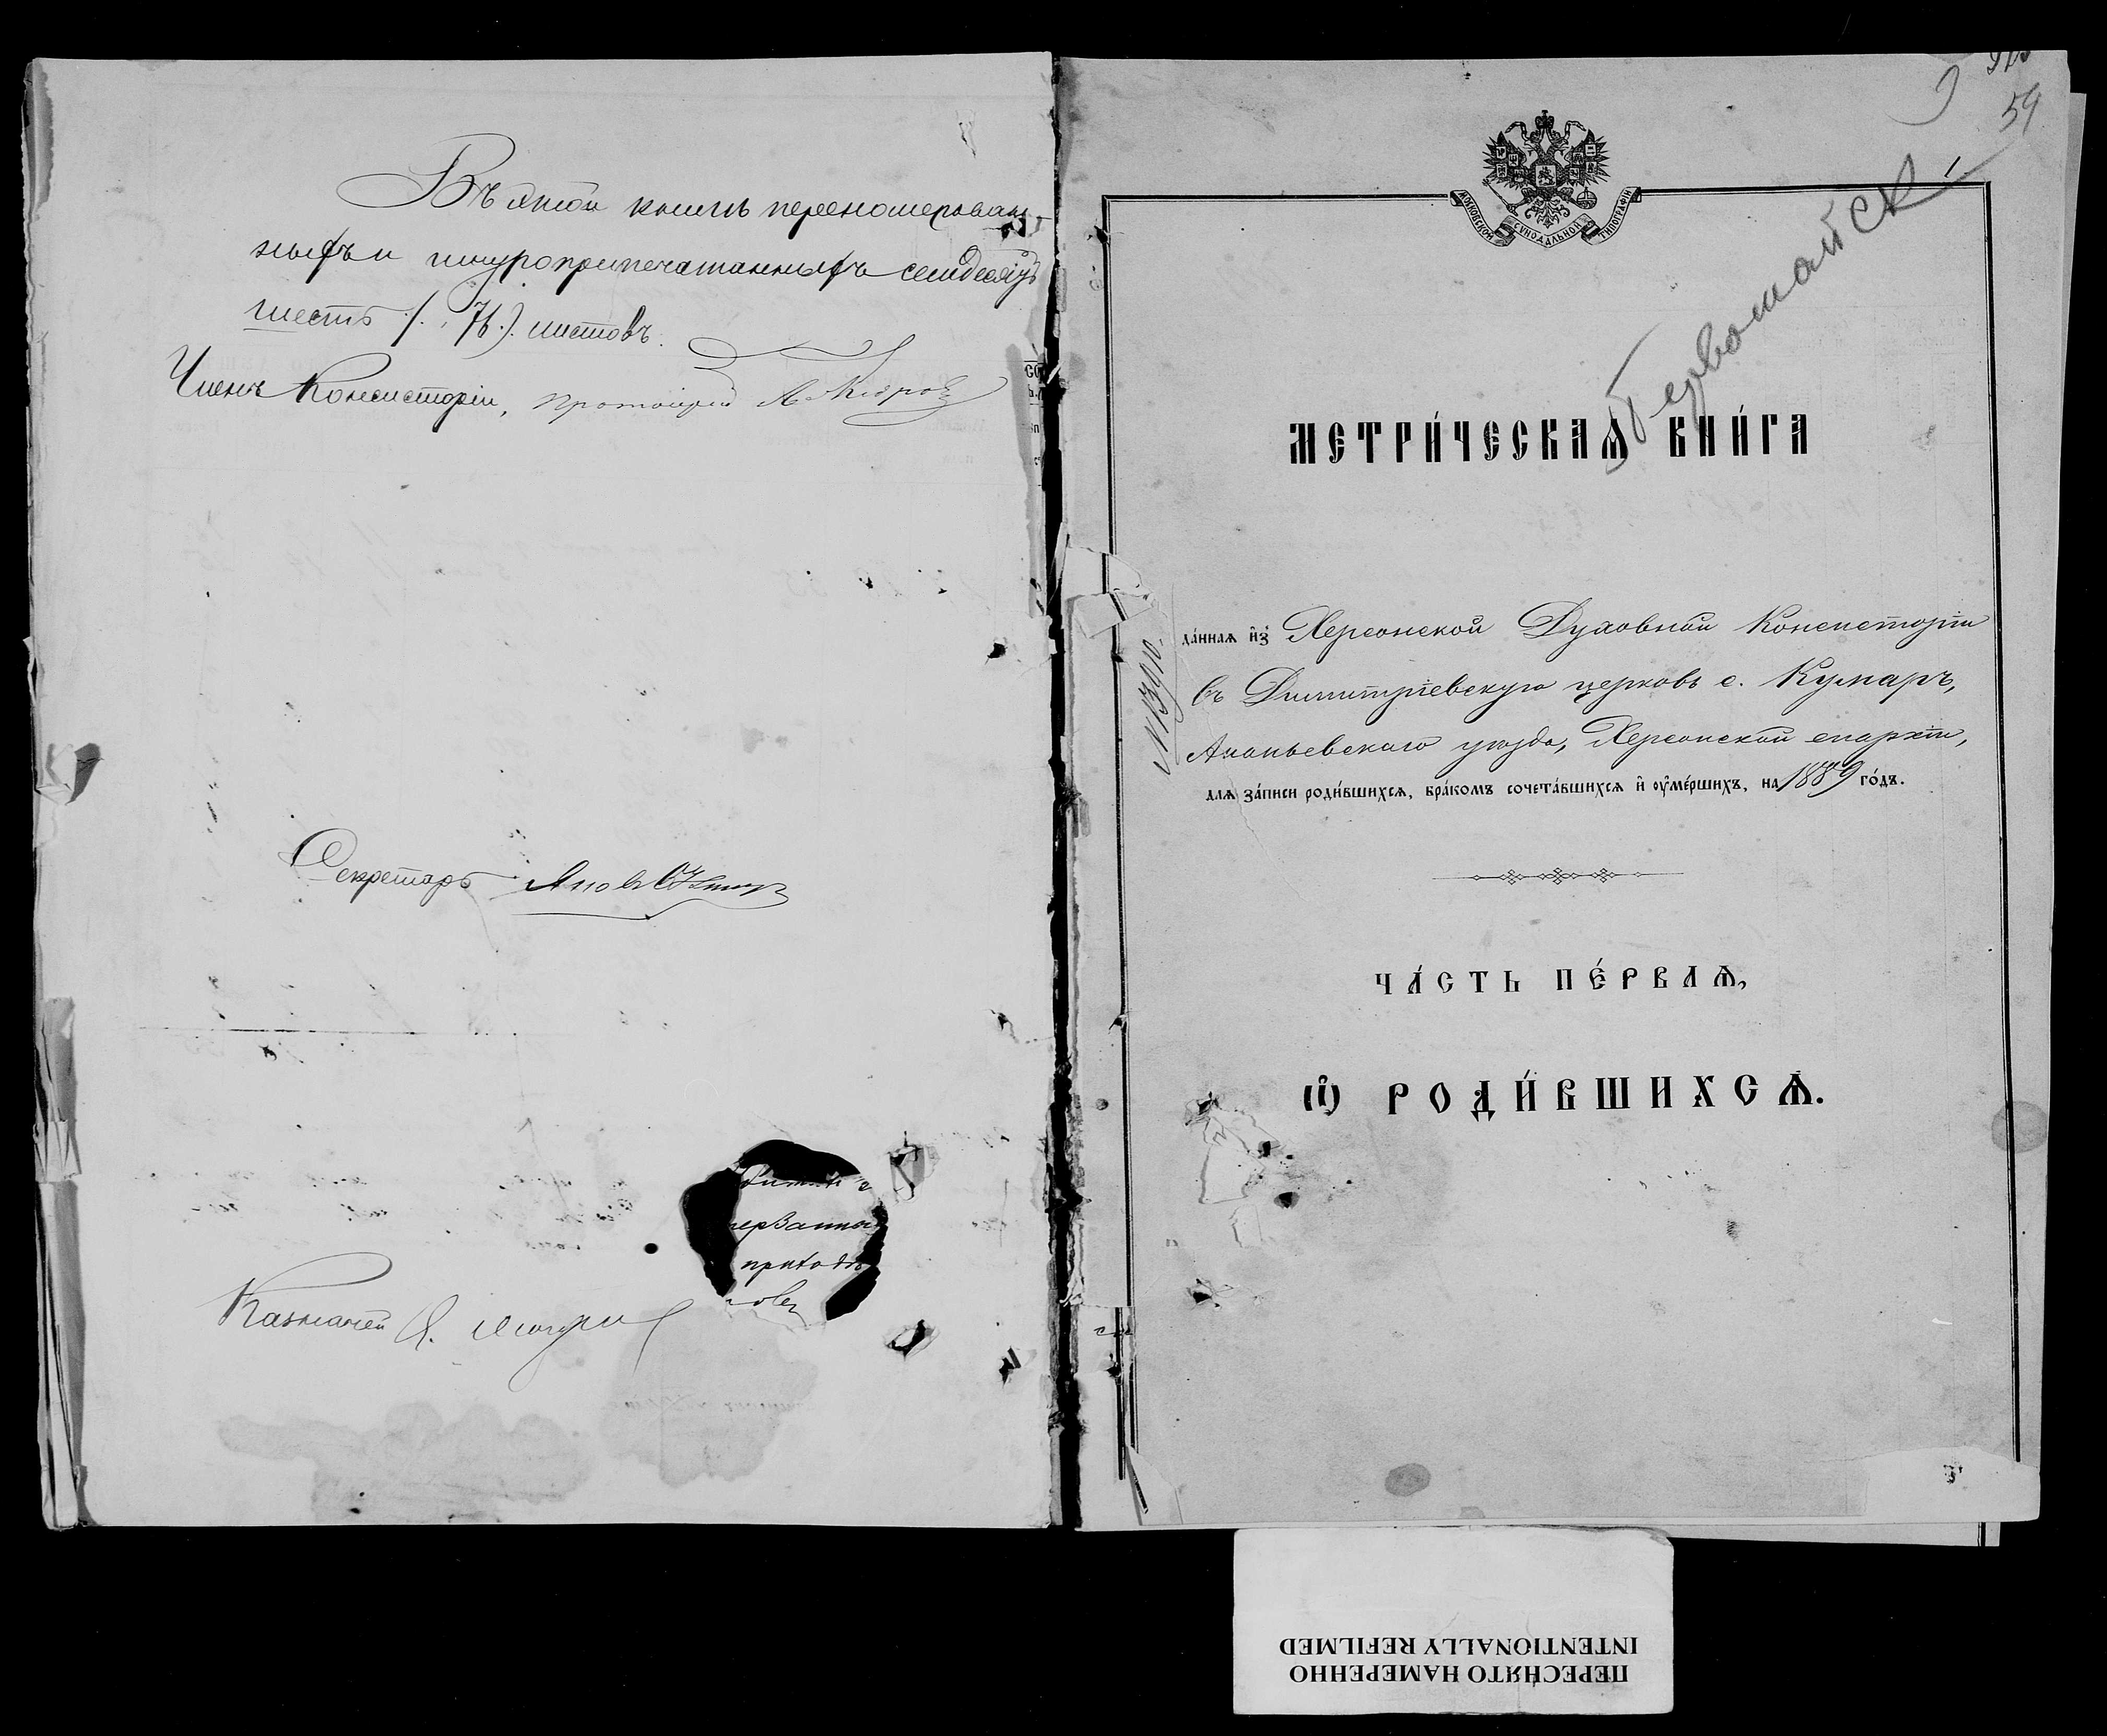 Въ этой книгѣ перенумерован-
ныхъ и шнуроприпечатанныхъ семьдесятъ
шесть (76.) листовъ.
Членъ Консисторіи, протоіерей
Секретарь
Казначей
приходѣ
59
1
МОСКОВСКОЙ СѴНОДАЛЬНОЙ ТИПОГРАФІИ
Первомайск
МЕТРИ́ЧЕСКАѦ КНИ́ГА
да́ннаѧ и҆зъ Херсонской Духовной Консисторіи
въ Димитріевскую церковь с. Кумаръ,
Ананьевскаго уѣзда, Херсонской епархіи,
длѧ за́писи роди́вшихсѧ, бра́комъ сочета́вшихсѧ и҆ ᲂу҆ме́ршихъ, на 1889 го́дъ.
ЧА́СТЬ ПЕ́РВАѦ,
Ѽ РОДИ́ВШИХСѦ.
ПЕРЕСНЯТО НАМЕРЕННО
INTENTIONALLY REFILMED